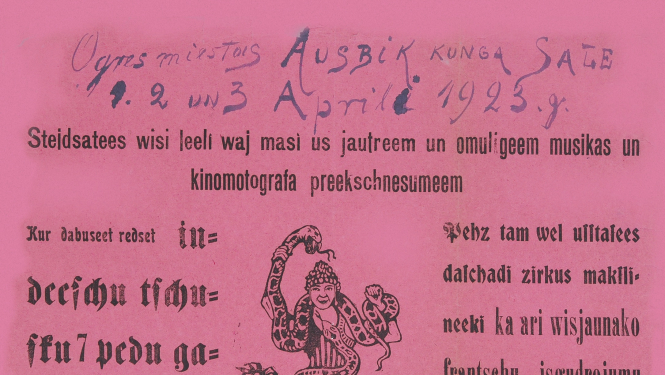 Ogres miestas AUSBIK KUNGA SALE
1. 2 un 3 Aprili 1923.g.
Steidsatees wisi leeli waj masi us jautreem un omuligeem musikas un
kinomotografa preekschnesumeem
Kur dabuseet redset in=
deeschu tschu=
sku 7 pedu ga=
Pehz tam wel usstasees
daschadi zirkus makssli-
neeki ka ari wisjaunako
frantschu isgudrojumu